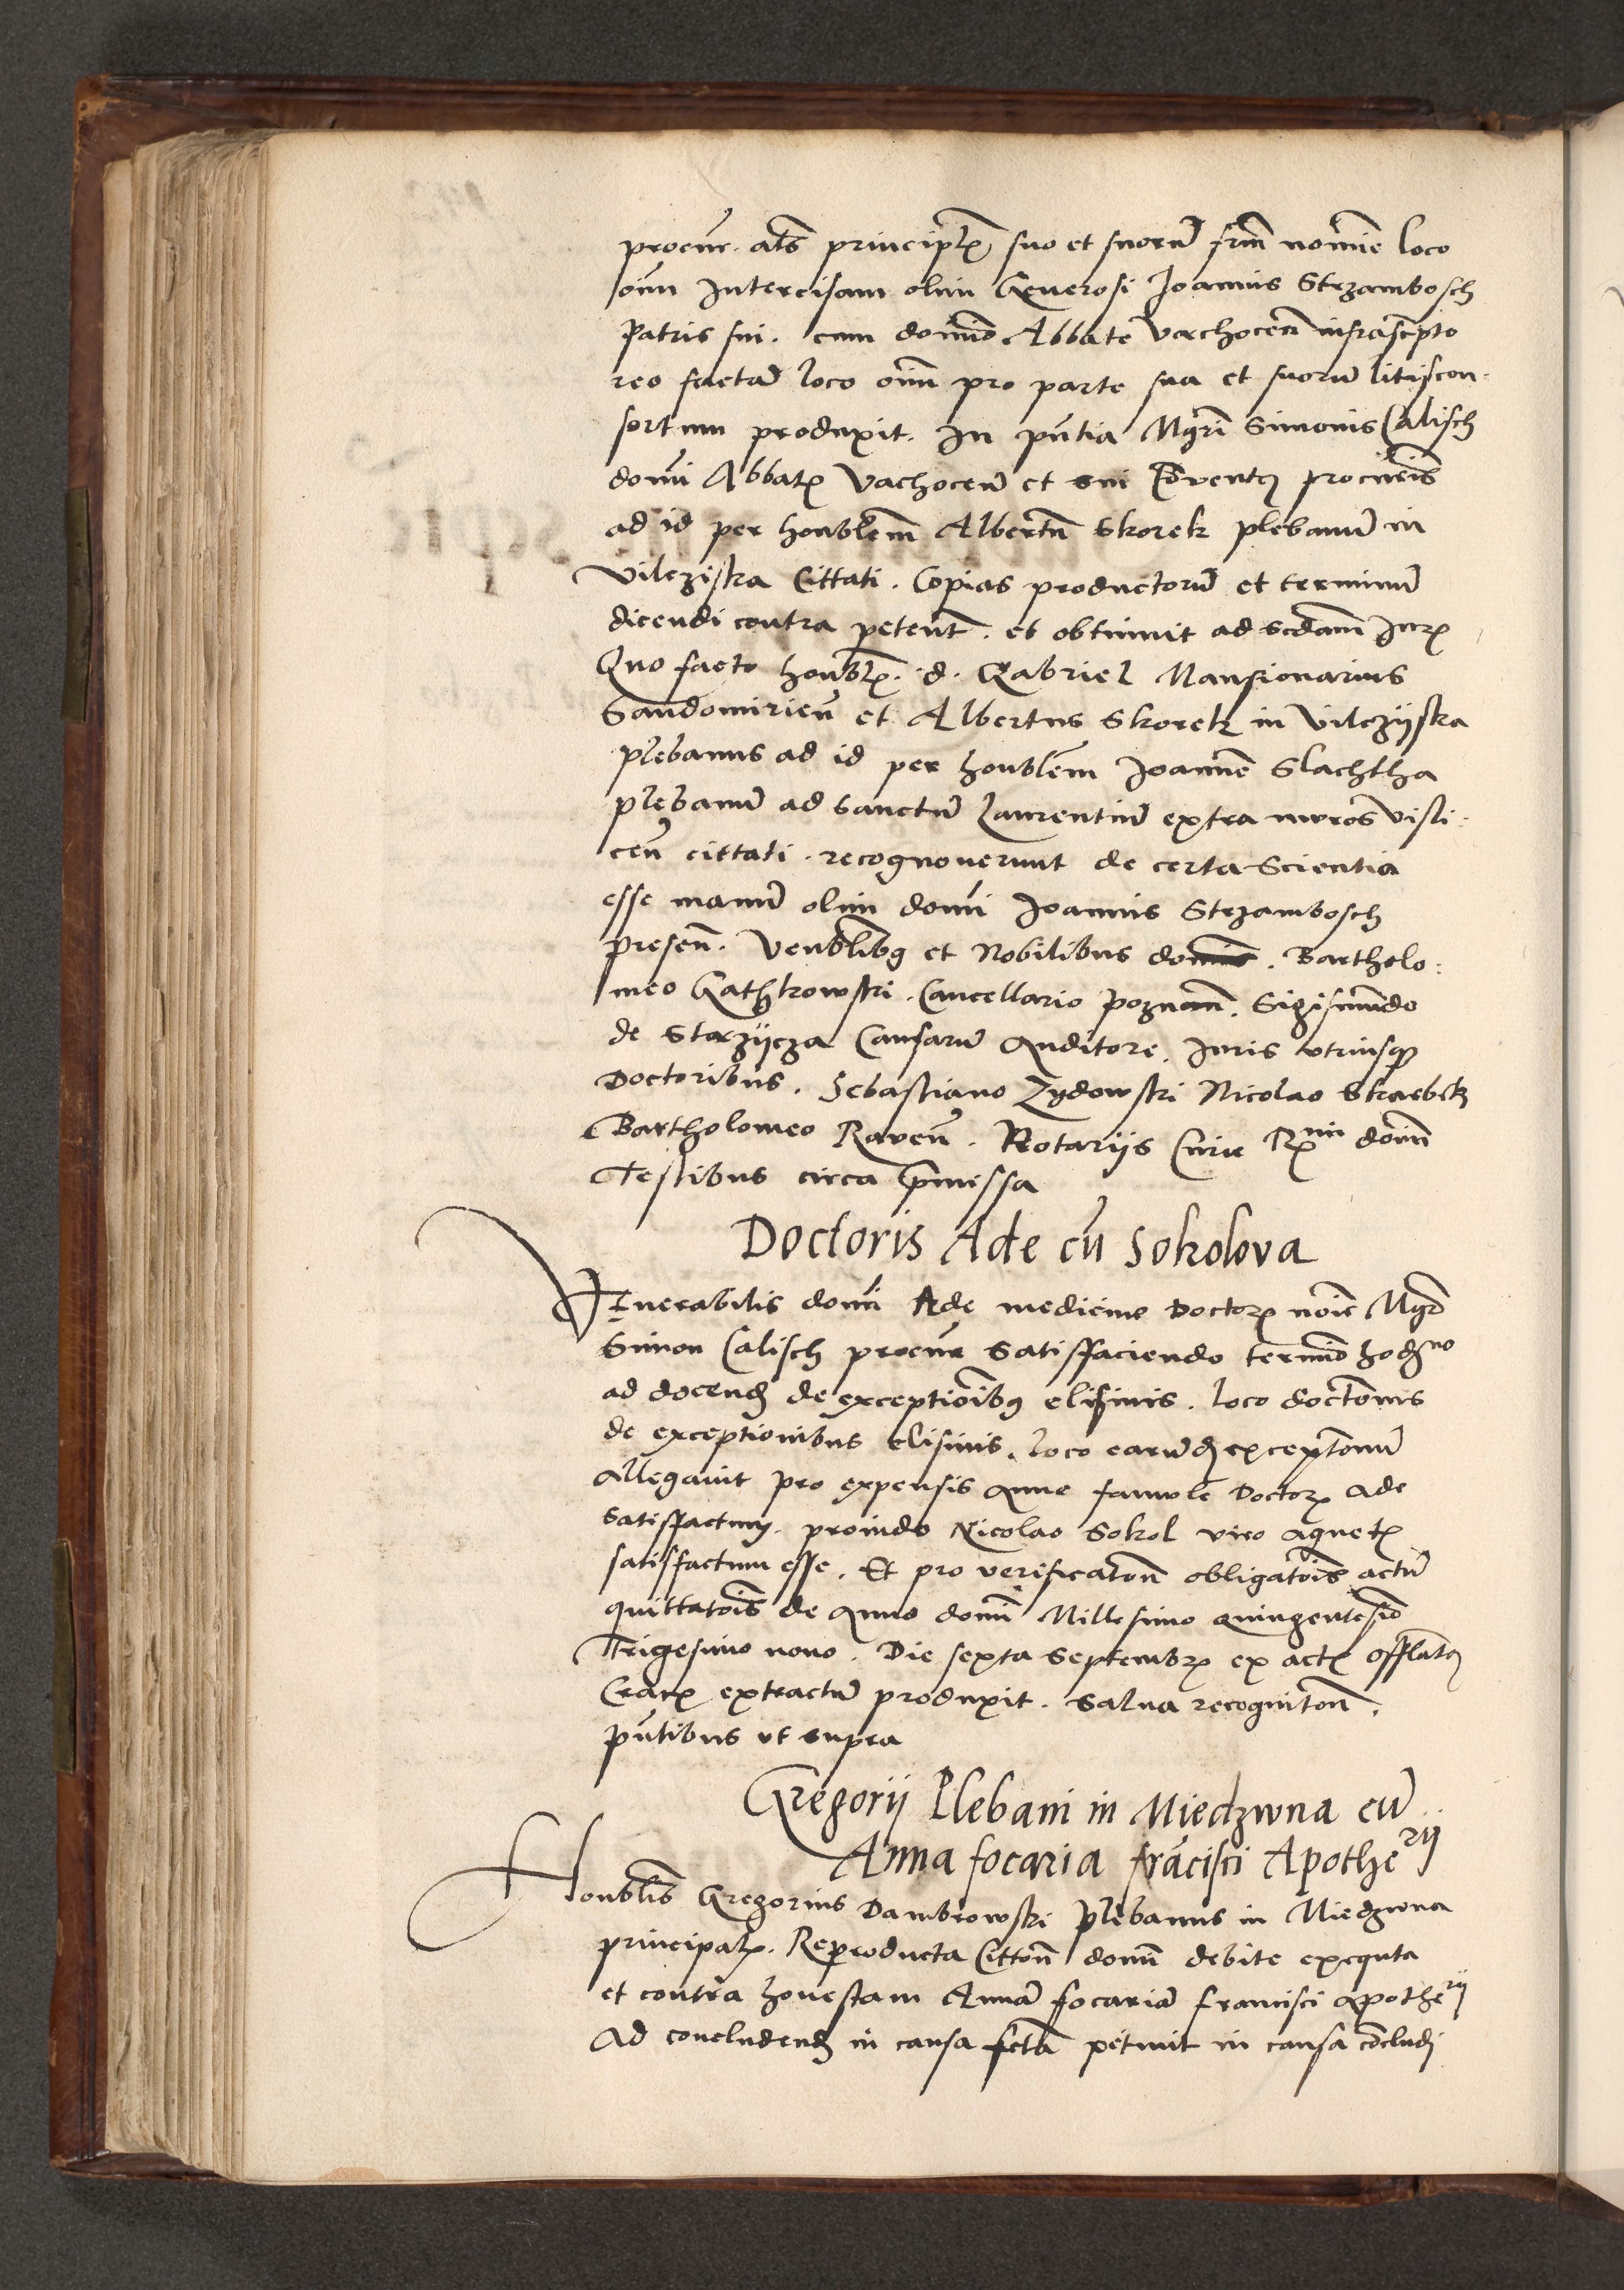 procur. als principlr suo et suorũ frm̃ nomie loco
oim̃ Intercisam olim Generosi Joannis Strzambosch
Patris sui. cum domino Abbate Vachocen̄ infrascrpto
reo factã loco oim̃ pro parte sua et suorũ litiscon-
sortum produxit. In pn̄tia Mgri Simonis Calisch
domi Abbatis Vachocen̄ et sui Cõventus procuris
ad id per honblem̃ Albertũ Skorek plebanũ in
Vilcziska Cittati. Copias productorũ et terminũ
dicendi contra petent̃. et obtinuit ad scdam̃ Juris
Quo facto honblis. d. Gabriel Mansionarius
Sandomirien̄ et Albertus Skorek in Vilczijska
plebanus ad id per honblem Joannẽ Slachtha
plebanũ ad sanctũ Laurentiũ extra muros visli-
cen̄ cittati. recognoverunt de certa Scientia
esse manũ olim domi Joannis Strzambosch
presen̄. Venblibus et Nobilibus . Bartholo-
meo Cancellario Poznan̄. Sigismũdo
de Starzijcza Causarũ Auditore. Juris vtriusqz
Doctoribus. Sebastiano Zydowski Nicolao Skarbek
Bartholomeo Raven̄. Notarijs Curie Rmi domi
Testibus circa p̄missa
Doctoris Ade cũ Sokolova
Venerabilis domi Ade medicine Doctoris noie Mgr̃
Simon Calisch procur Satisfaciendo termino hodno
ad docend de exceptioibus elisivis. loco doctonis
de exceptionibus elisivis. loco earũd exceptonũ
Allegavit pro expensis Anne famule Doctoris Ade
Satisfactum. proinde Nicolao Sokol viro Agnetis
satisfactum esse. Et pro verificaton̄ obligatois actũ
quittatois de Anno domi Millesimo quingentesio
Trigesimo nono. Die sexta Septembris ex actis offlatus
Cracx extractũ produxit. salua recogniton̄.
pn̄tibus vt supra
Gregorij Plebani in Miedzwna cũ
Anna focaria frãcisci Apotherij
Honblis Gregorius Dambrowski Plebanus in Miedzwna
principalis. Reproducta Citton̄ domi debite exequta
et contra honestam Annã focariã francisci apotherij
Ad concludend in causa fctã petiuit in causa cõcludj